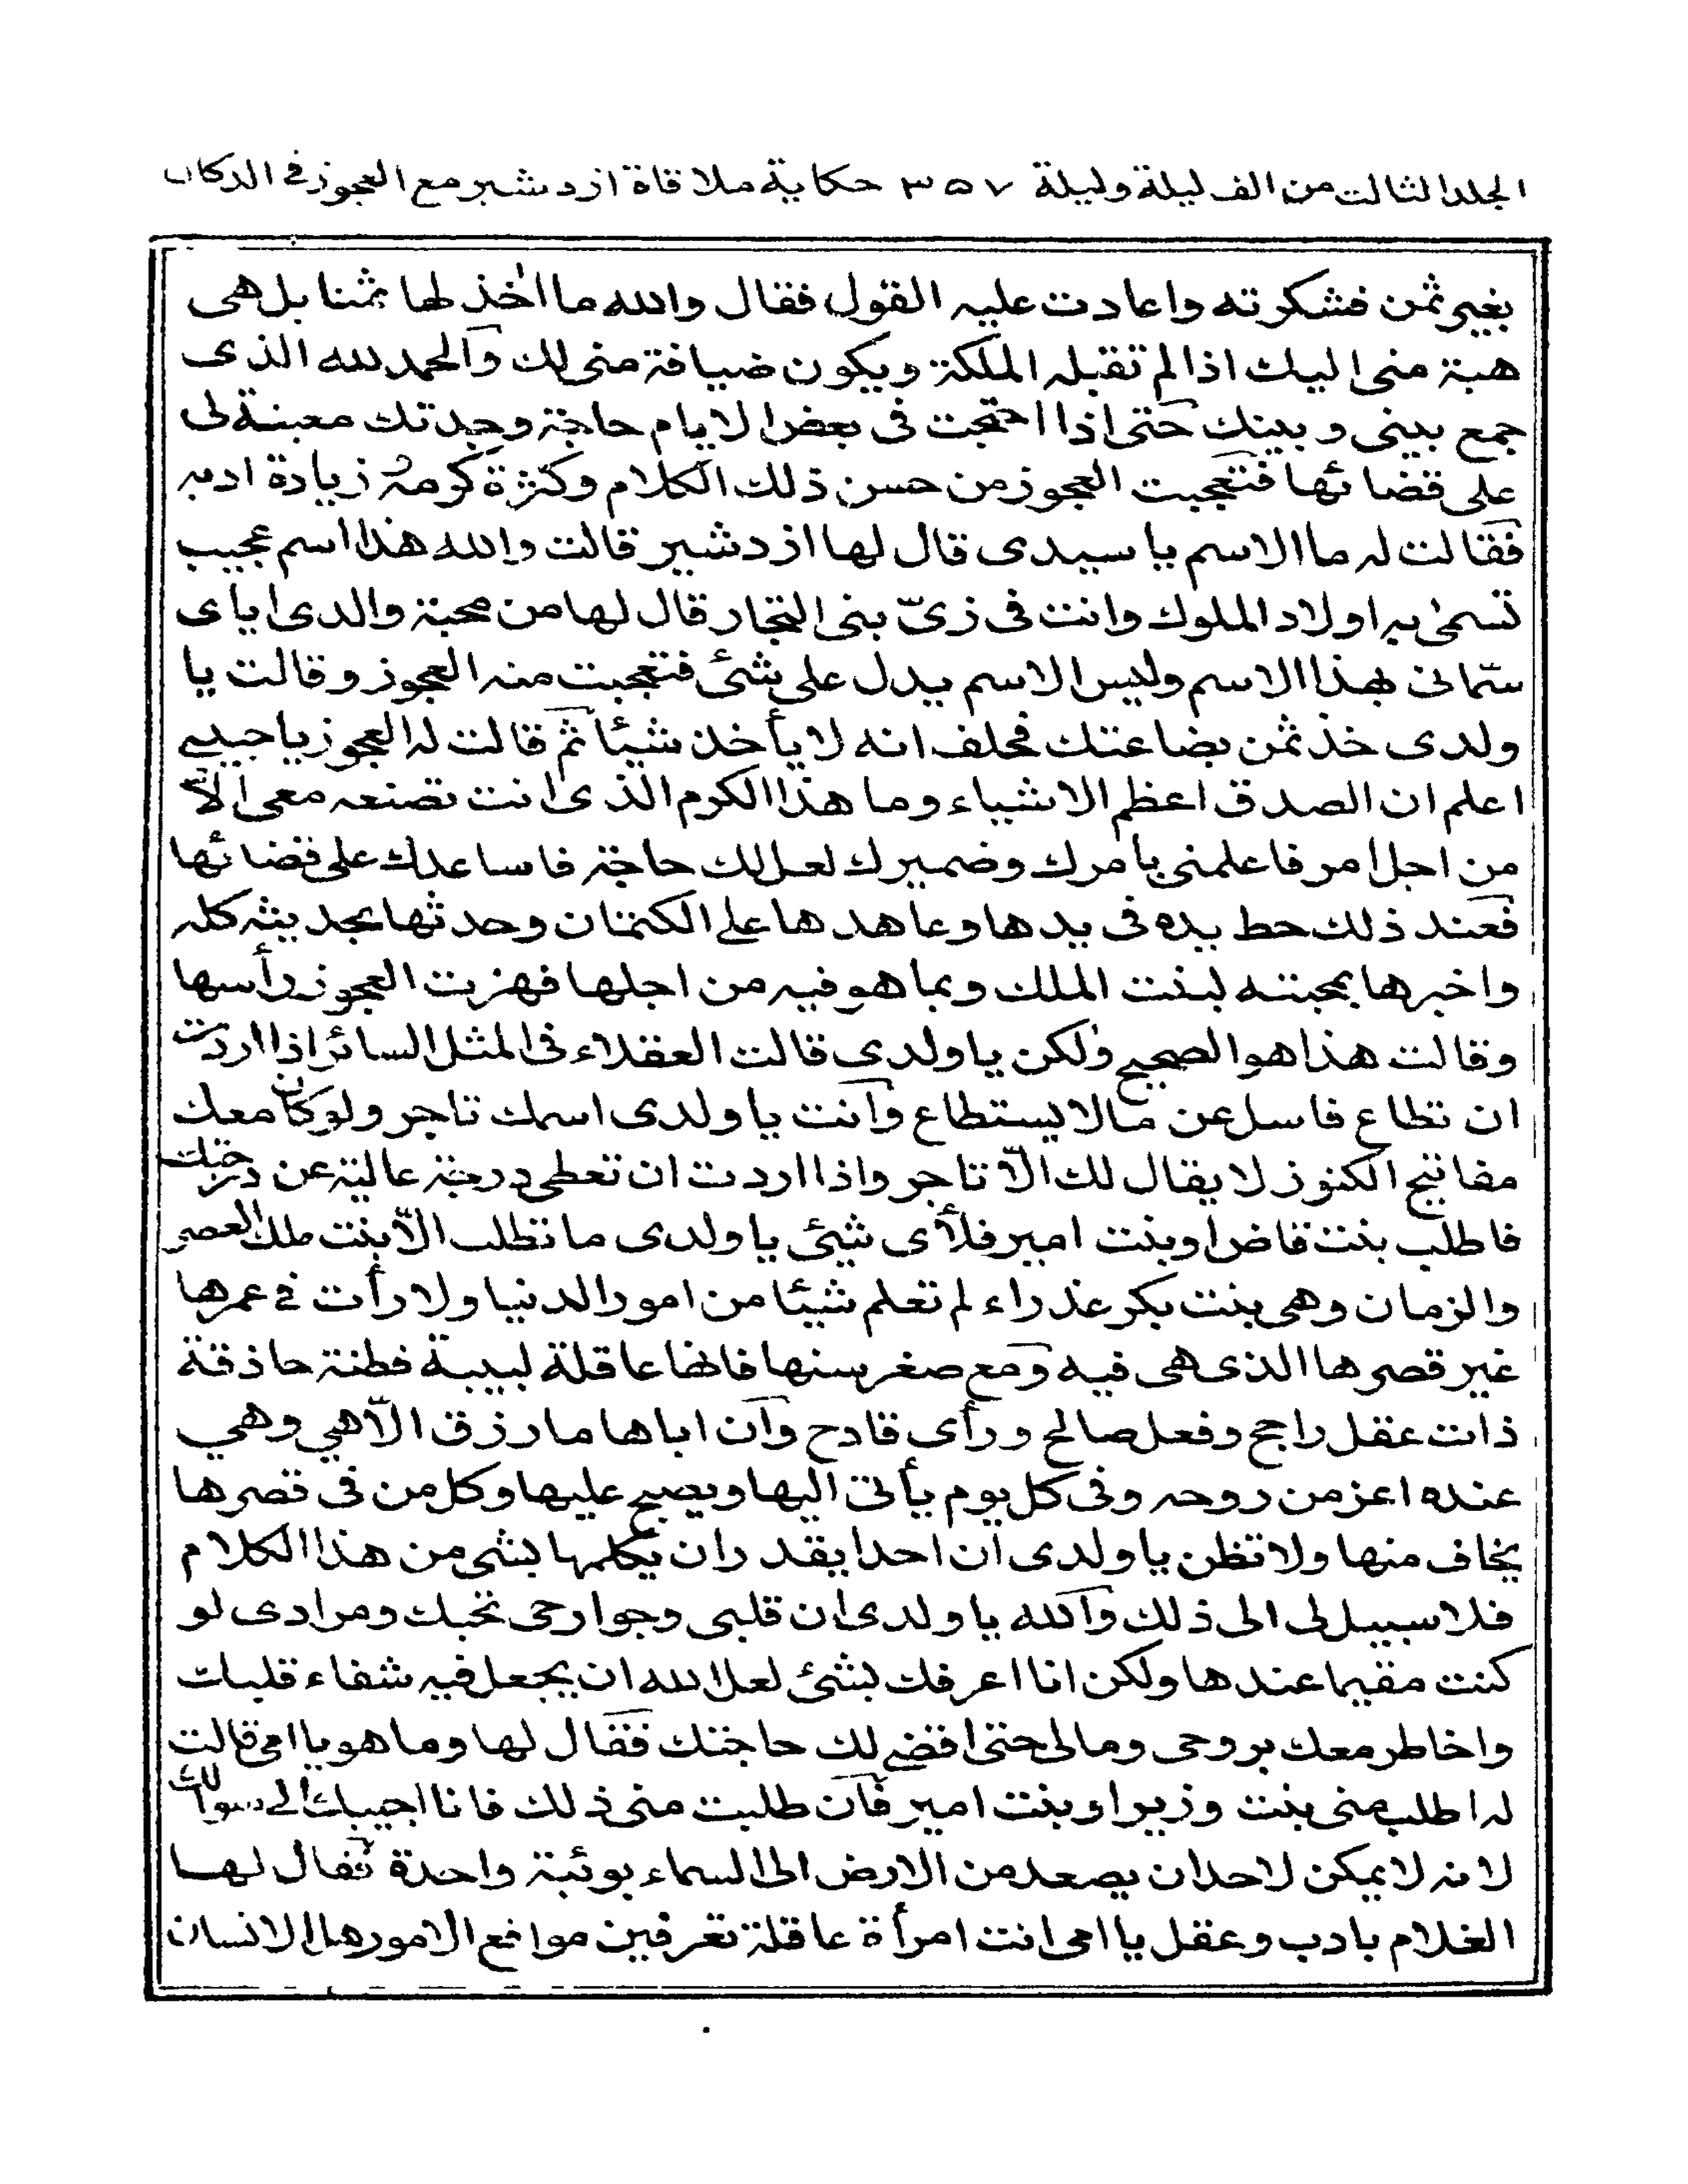 الجلد الثالث من الف ليلة وليلة ٣٥٧ حكاية ملاقاة ازدشير مع العجوز في الدكان
بغير ثمن فشكرته واعادت عليه القول فقال والله ما اٰخذ لها ثمنا بل هى
هبة منى اليك اذا لم تقبله الملكة ويكون ضيافة منى لك والحمد لله الذى
جمع بينى وبينك حتى اذا احتجت فى بعض الايام حاجة وجدتك معينة لى
على قضائها فتعجبت العجوز من حسن ذلك الكلام وكثرة كرمه زيادة ادبه
فقالت له ما الاسم يا سيدى قال لها ازدشير قالت والله هذا اسم عجيب
تسمى به اولاد الملوك وانت فى زىّ بنى التجار قال لها من محبة والدى اياى
سمّانى بهذا الاسم وليس الاسم يدل على شئ فتعجبت منه العجوز وقالت يا
ولدى خذ ثمن بضاعتك فحلف انه لا يأخذ شيئا ثم قالت له العجوز يا حبيبي
اعلم ان الصدق اعظم الاشياء وما هذا الكرم الذى انت تصنعه معى الّا
من اجل امر فاعلمنى بامرك وضميرك لعل لك حاجة فاساعدك على قضائها
فعند ذلك حط يده فى يدها وعاهدها على الكتمان وحدثها بحديثه كله
واخبرها بمحبته لبنت الملك وبما هو فيه من اجلها فهزت العجوز رأسها
وقالت هذا هو الصحيح ولكن يا ولدى قالت العقلاء فى المثل السائر اذا اردت
ان تطاع فاسل عن ما لا يستطاع وانت يا ولدى اسمك تاجر ولو كان معك
مفاتيح الكنوز لا يقال لك الّا تاجر واذا اردت ان تعطى درجة عالية عن درجتك
فاطلب بنت قاض او بنت امير فلأى شئ يا ولدى ما تطلب الّا بنت ملك العصر
والزمان وهى بنت بكر عذراء لم تعلم شيئا من امور الدنيا ولا رأت في عمرها
غير قصرها الذى هى فيه ومع صغر سنها فانها عاقلة لبيبة فطنة حاذقة
ذات عقل راجح وفعل صالح ورأى قادح وان اباها ما رزق الّا هي وهي
عنده اعز من روحه وفى كل يوم يأتى اليها ويصبح عليها وكل من فى قصرها
يخاف منها ولا تظن يا ولدى ان احدا يقدر ان يكلمها بشى من هذا الكلام
فلا سبيل لى الى ذلك والله يا ولدى ان قلبى وجوارحى تحبك ومرادى لو
كنت مقيما عندها ولكن انا اعرفك بشئ لعل الله ان يجعل فيه شفاء قلبك
واخاطر معك بروحى ومالى حتى اقضي لك حاجتك فقال لها وما هو يا امى قالت
له اطلب منى بنت وزير او بنت امير فان طلبت منى ذلك فانا اجيبك الى سوالك
لانه لا يمكن لاحد ان يصعد من الارض الى السماء بوثبة واحدة فقال لها
الغلام بادب وعقل يا امى انت امرأة عاقلة تعرفين مواقع الامور هل الانسان